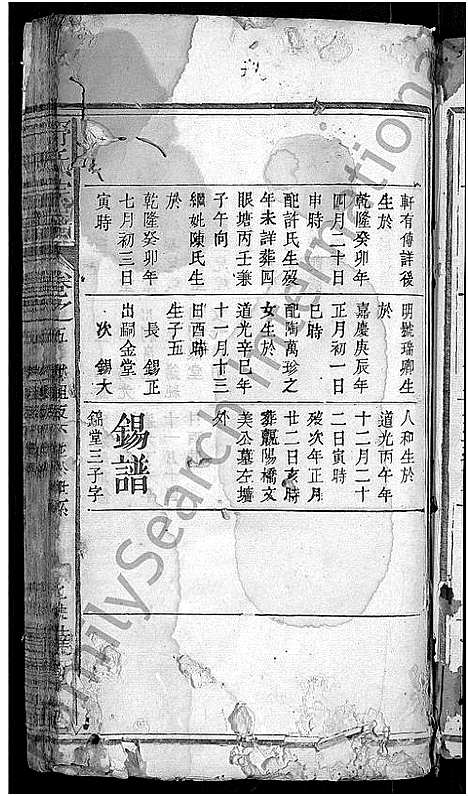 軒有傳詳後
生於
乾隆癸卯年
四月二十日
申時
配許氏生歿
年未詳葬回
眼塘丙壬兼
子午向
繼妣陳氏生
於
乾隆癸卯年
七月初三日
寅時
明號瑞卿生
於
嘉慶庚辰年
正月初一日
巳時
配陶萬珍之
女生於
道光辛巳年
十一月十三
日酉時
生子五
長 錫正
出嗣金堂
次 錫大
人和生於
道光丙午年
十二月二十
二日寅時
歿次年正月
廿二日亥時
葬甑陽橋文
美公墓左墻
外
錫譜
錦堂三子字
卷之
五
FamilySearch International